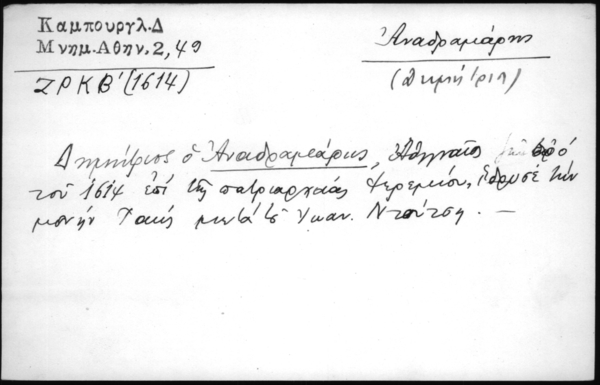 Καμπουργλ.Δ
Μνημ.Αθην.2,49
ΖΡΚΒ' (1614)
Ἀναδραμεάρης
(Δημήτριος)
Δημήτριος ὁ Ἀναδραμεάρης, Ἀθηναῖος
τοῦ 1614 ἐπί τῆς πατριαρχείας Ἱερεμίου, ἵδρυσε τήν
μονήν μετά τοῦ Ντούτση. —